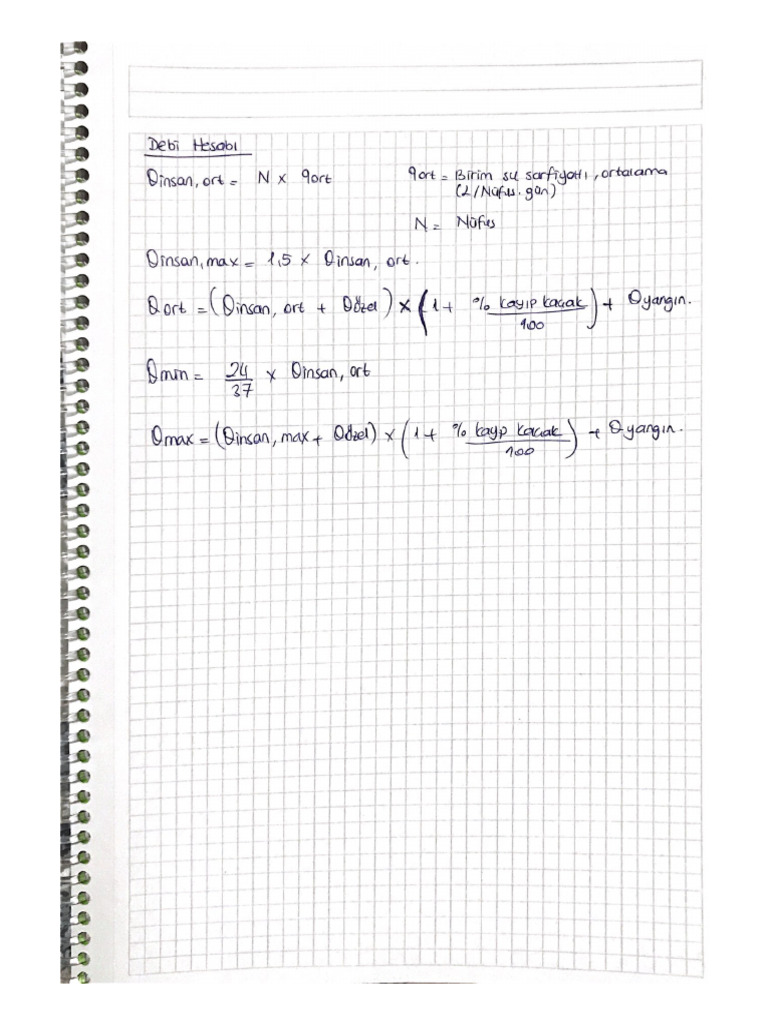 Debi Hesabı
Qinsan, ort = N x qort
qort = Birim su sarfiyatı, ortalama
(L/Nüfus.gün)
N = Nüfus
Qinsan, max = 1,5 x Qinsan, ort.
Qort = (Qinsan, ort + Qözel) x (1 + % kayıp kaçak / 100) + Qyangın.
Qmin = 24/37 x Qinsan, ort
Qmax = (Qinsan, max + Qözel) x (1 + % kayıp kaçak / 100) + Qyangın.